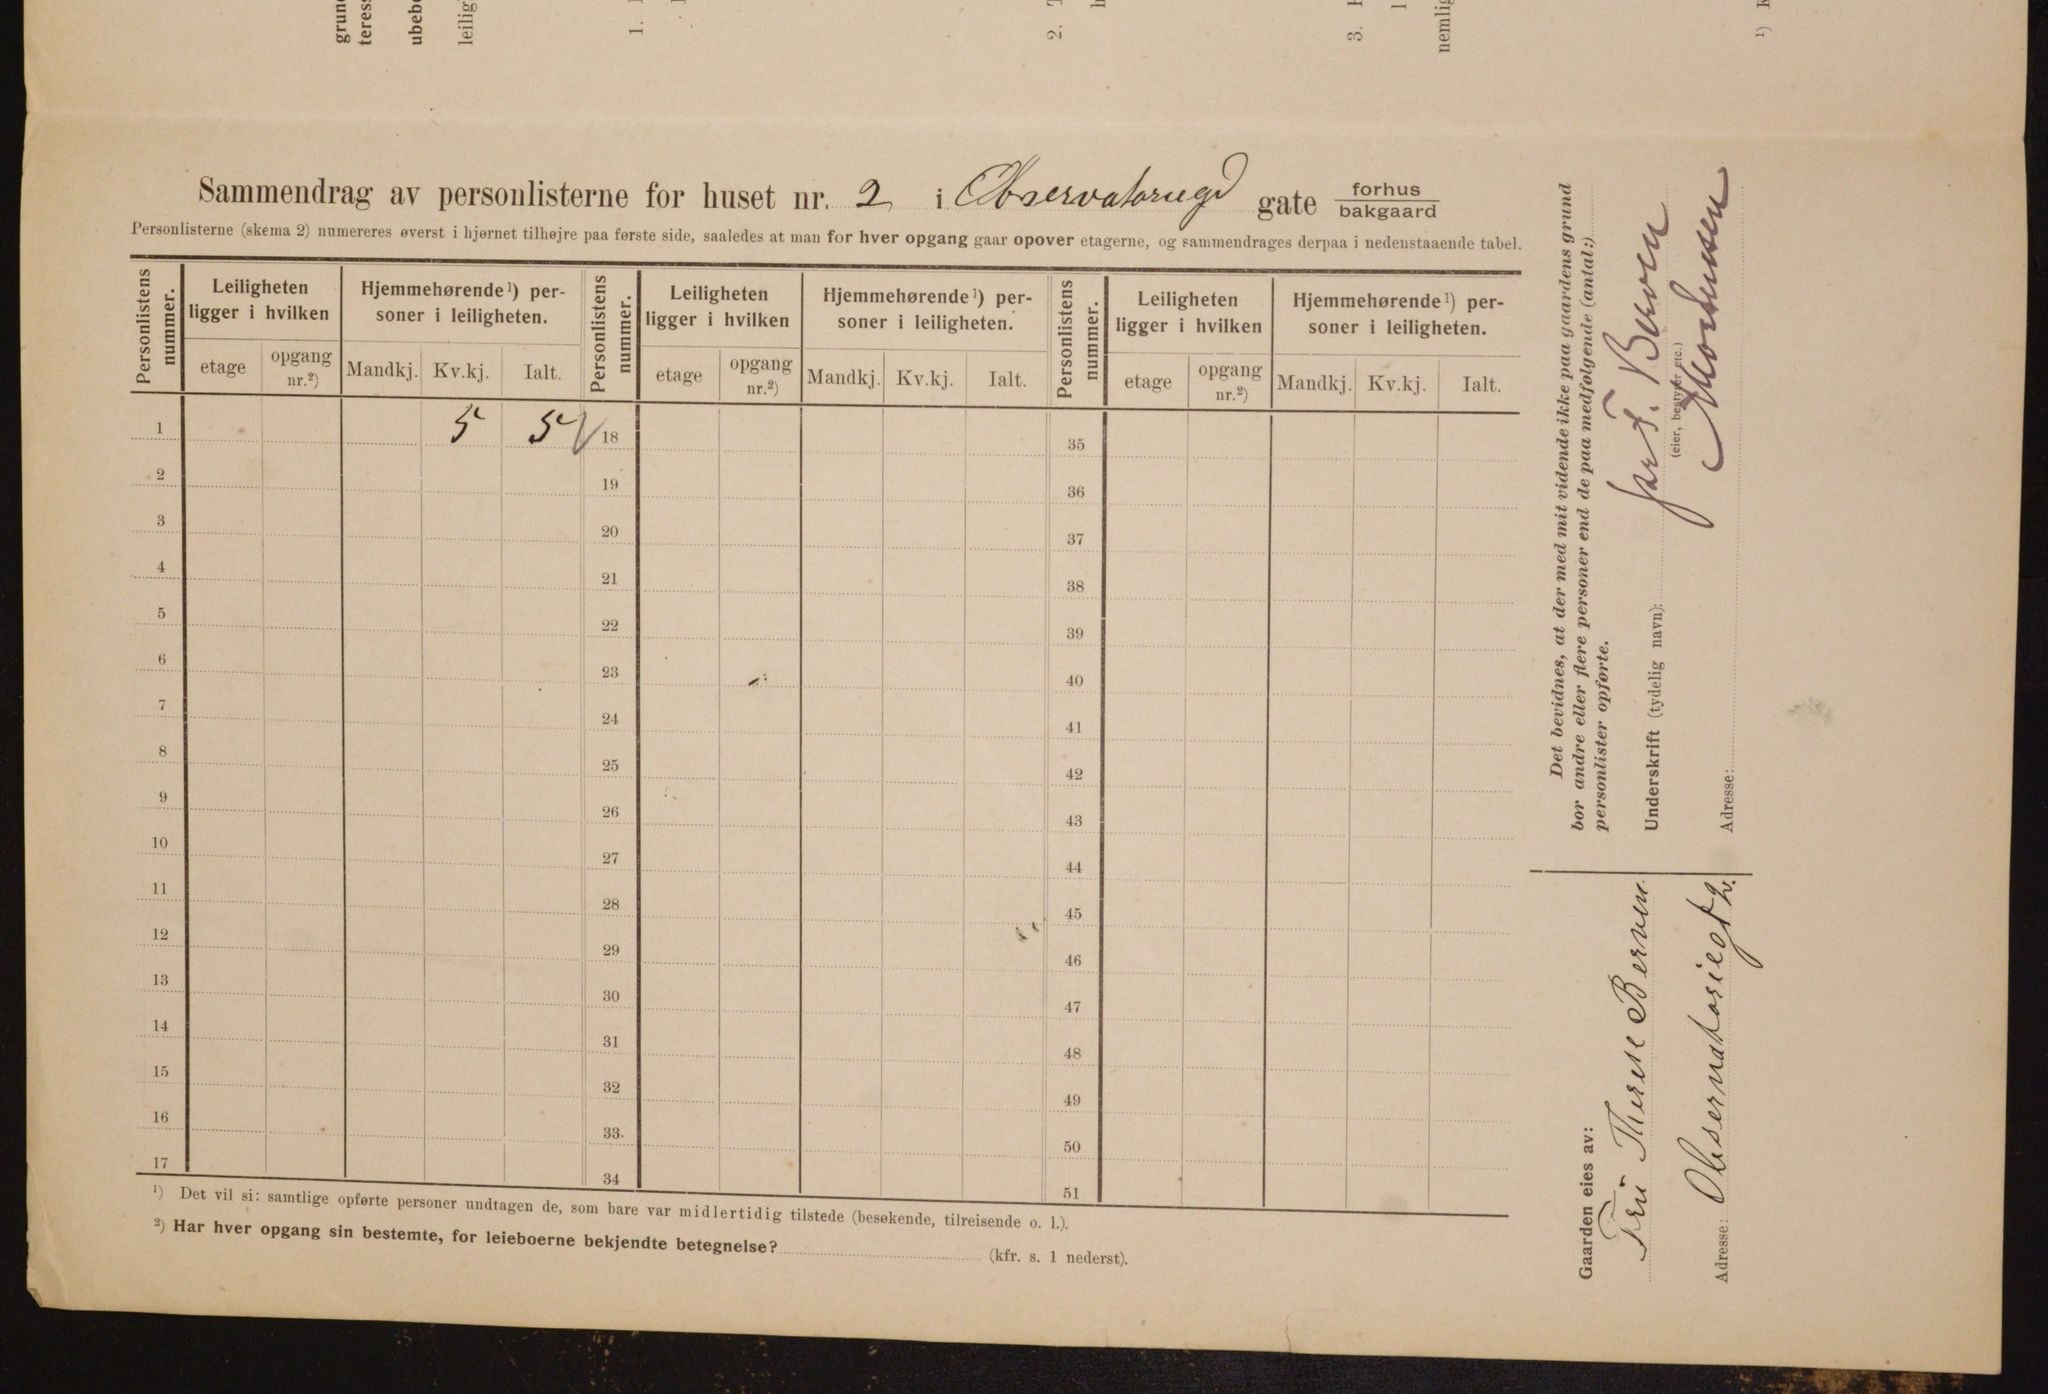 grun
teress
ubebo
leilig
1.
2. T
h
3.
nemlig
¹)
Sammendrag av personlisterne for huset nr. 2 i Observatoriegd gate forhus
bakgaard
Personlisterne (skema 2) numereres øverst i hjørnet tilhøjre paa første side, saaledes at man for hver opgang gaar opover etagerne, og sammendrages derpaa i nedenstaaende tabel.
Personlistens nummer.
Leiligheten ligger i hvilken
Hjemmehørende¹) personer i leiligheten.
etage opgang nr.²) Mandkj. Kv.kj. Ialt.
Personlistens nummer.
Leiligheten ligger i hvilken
Hjemmehørende¹) personer i leiligheten.
etage opgang nr.²) Mandkj. Kv.kj. Ialt.
Personlistens nummer.
Leiligheten ligger i hvilken
Hjemmehørende¹) personer i leiligheten.
etage opgang nr.²) Mandkj. Kv.kj. Ialt.
1 5 5 18 35
2 19 36
3 20 37
4 21 38
5 22 39
6 23 40
7 24 41
8 25 42
9 26 43
10 27 44
11 28 45
12 29 46
13 30 47
14 31 48
15 32 49
16 33 50
17 34 51
¹) Det vil si: samtlige opførte personer undtagen de, som bare var midlertidig tilstede (besøkende, tilreisende o. l.).
²) Har hver opgang sin bestemte, for leieboerne bekjendte betegnelse? (kfr. s. 1 nederst).
Det bevidnes, at der med mit vidende ikke paa gaardens grund
bor andre eller flere personer end de paa medfølgende (antal:)
personlister opførte.
Underskrift (tydelig navn): for T. Berven
(eier, bestyrer etc.)
Mortensen
Adresse:
Gaarden eies av:
Fru Therese Berven
Adresse: Observatoriegt 2.